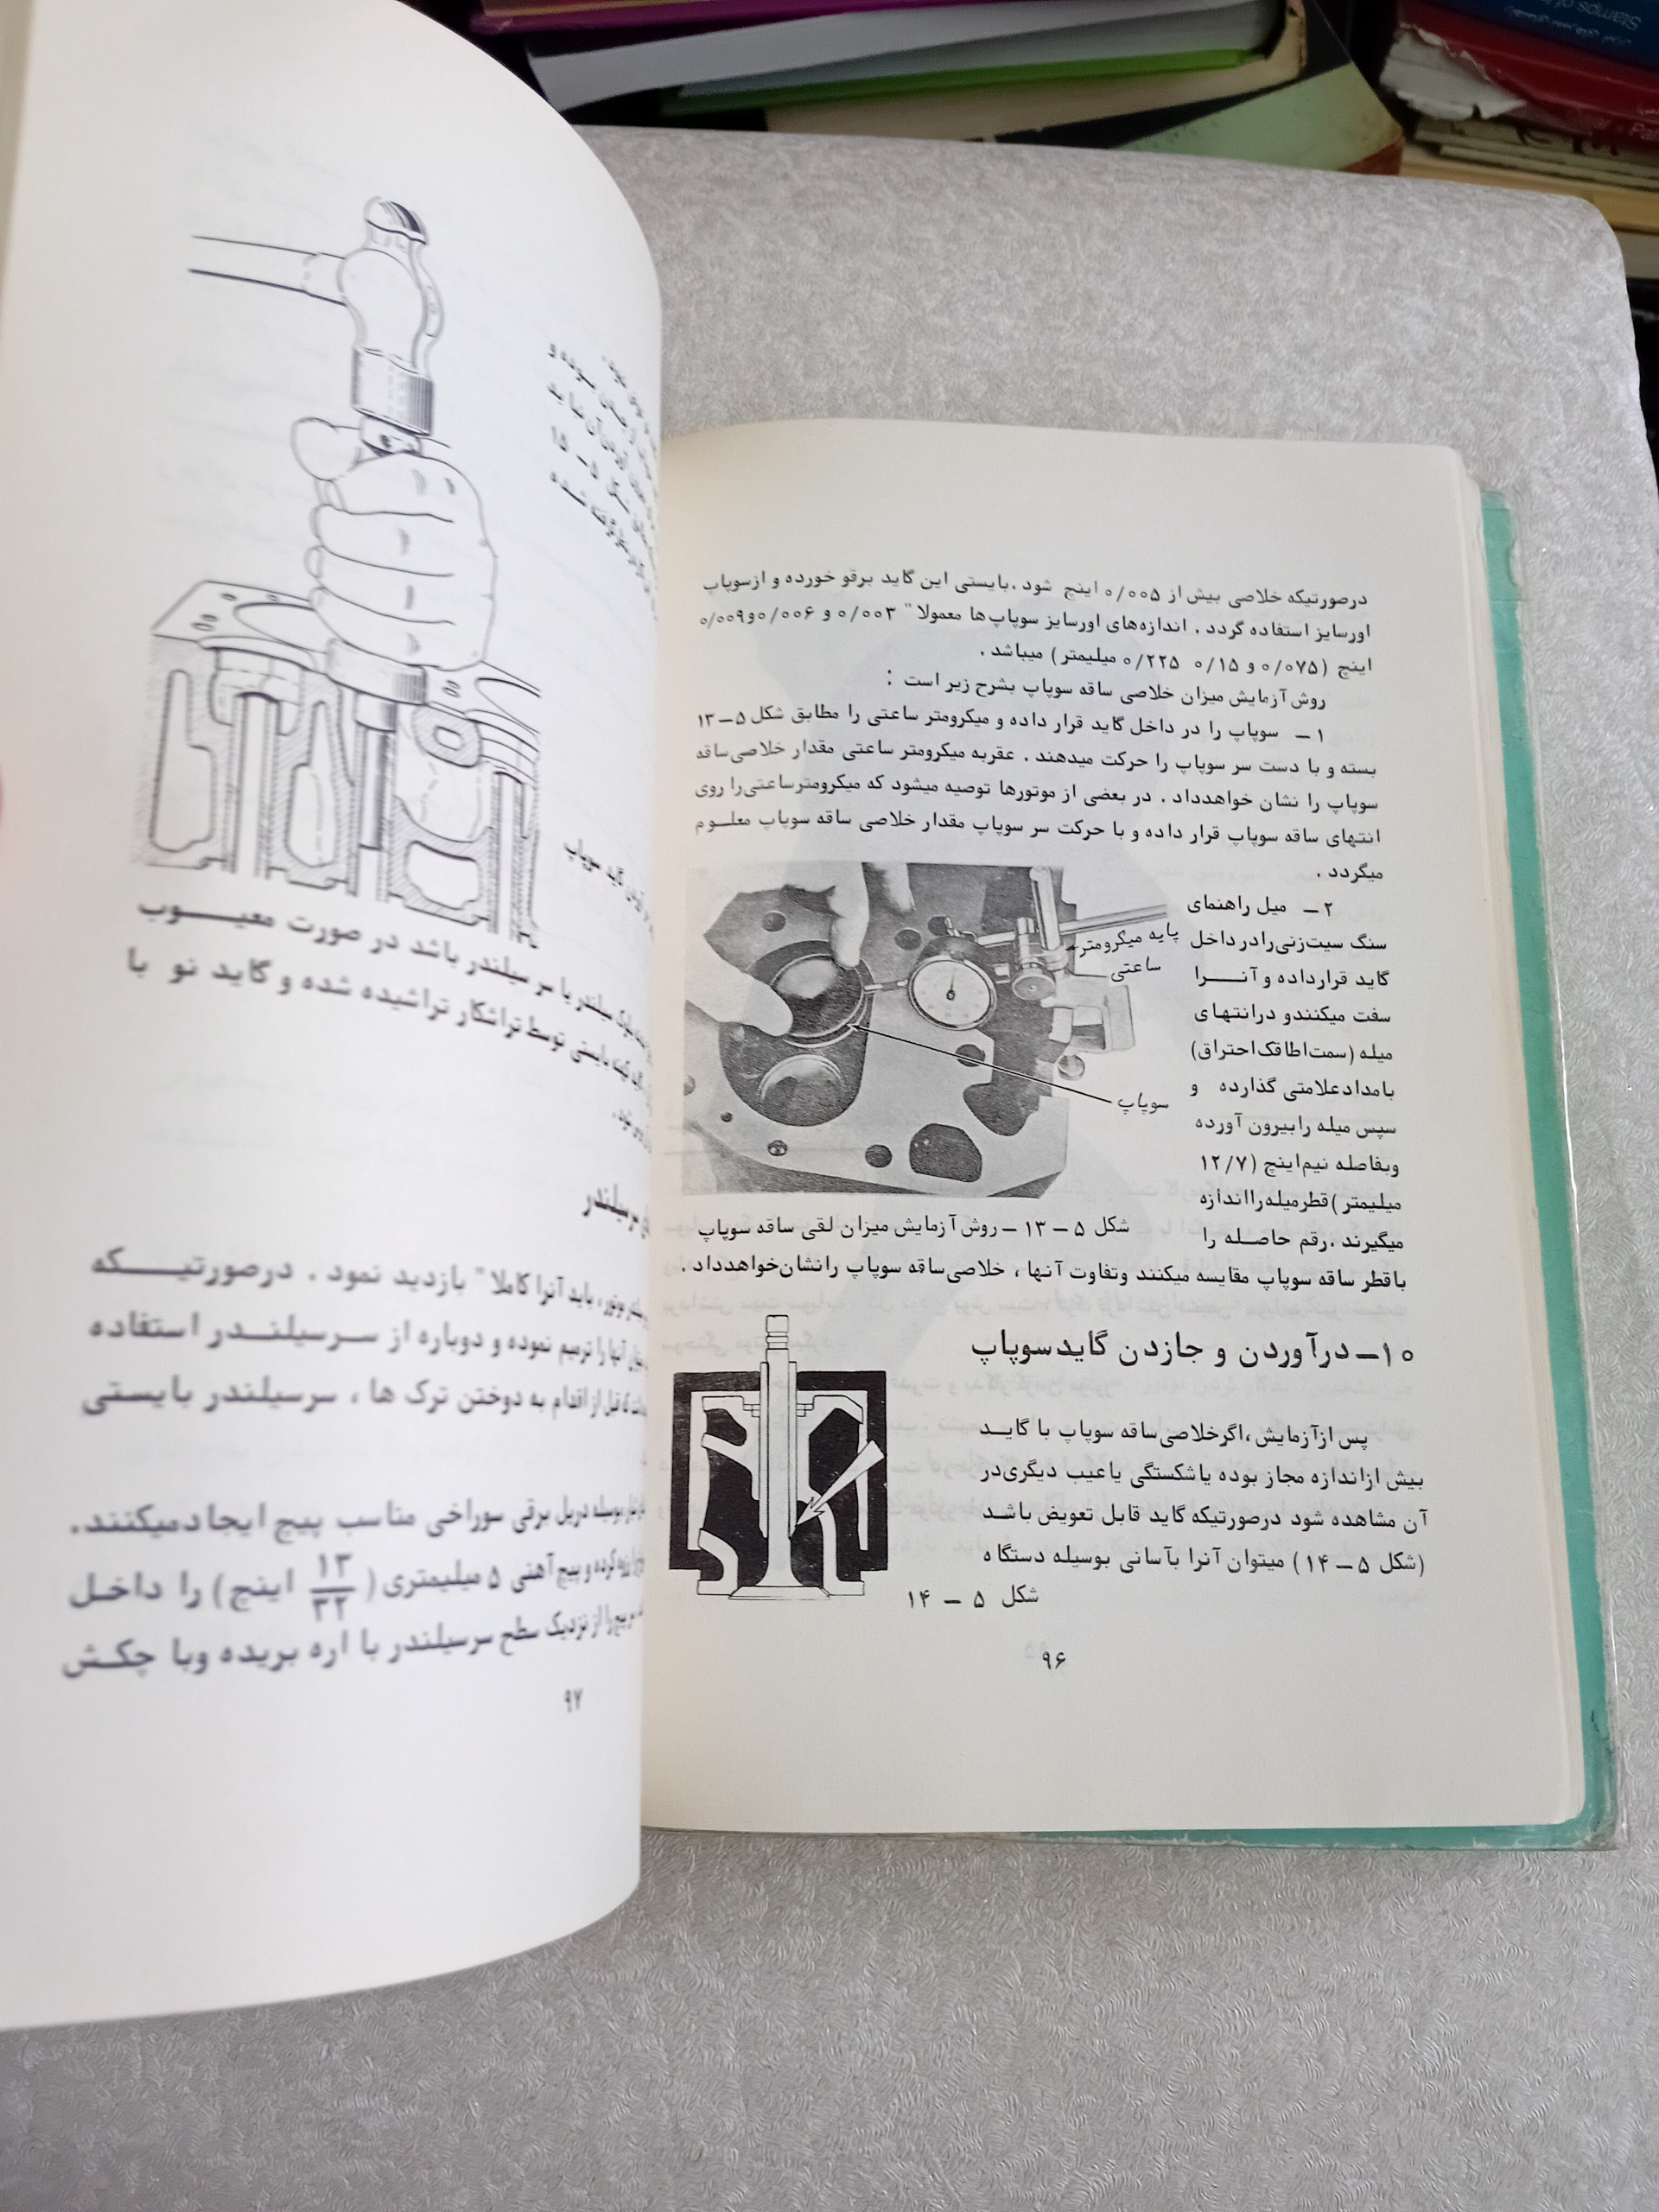 درصورتیکه خلاصی بیش از ۰/۰۰۵ اینچ شود.بایستی این گاید برقو خورده و ازسوپاپ
اورسایز استفاده گردد . اندازه‌های اورسایز سوپاپ‌ها معمولا" ۰/۰۰۳ و ۰/۰۰۶و۰/۰۰۹
اینچ (۰/۰۷۵ و ۰/۱۵ ۰/۲۲۵ میلیمتر) میباشد .
روش آزمایش میزان خلاصی ساقه سوپاپ بشرح زیر است :
۱ – سوپاپ را در داخل گاید قرار داده و میکرومتر ساعتی را مطابق شکل ۵–۱۳
بسته و با دست سر سوپاپ را حرکت میدهند . عقربه میکرومتر ساعتی مقدار خلاصی‌ساقه
سوپاپ را نشان خواهدداد . در بعضی از موتورها توصیه میشود که میکرومترساعتی‌را روی
انتهای ساقه سوپاپ قرار داده و با حرکت سر سوپاپ مقدار خلاصی ساقه سوپاپ معلـوم
میگردد .
۲ – میل راهنمای
سنگ سیت‌زنی‌رادرداخل
گاید قرارداده و آنـــرا
سفت میکنندو درانتهای
میله (سمت‌اطاقک‌احتراق)
بامدادعلامتی گذارده و
سپس میله رابیرون آورده
وبفاصله نیم‌اینچ (۱۲/۷
میلیمتر)قطرمیله‌رااندازه
میگیرند .رقم حاصـله را
پایه میکرومتر
ساعتی
سوپاپ
شکل ۵ – ۱۳ – روش آزمایش میزان لقی ساقه سوپاپ
باقطر ساقه سوپاپ مقایسه میکنند وتفاوت آنها ، خلاصی‌ساقه سوپاپ رانشان‌خواهدداد .
۱۰– درآوردن و جازدن گاید سوپاپ
پس ازآزمایش ،اگرخلاصی‌ساقه سوپاپ با گایـد
بیش ازاندازه مجاز بوده یاشکستگی یاعیب دیگری‌در
آن مشاهده شود درصورتیکه گاید قابل تعویض باشـد
(شکل ۵ – ۱۴) میتوان آنرا بآسانی بوسیله دستگاه
شکل ۵ – ۱۴
۹۶
گاید سوپاپ
سیلندر یا سر سیلندر باشد در صورت معیـــوب
بایستی توسط تراشکار تراشیده شده و گاید نو با
سرسیلندر
موتور ، باید آنرا کاملا" بازدید نمود . درصورتیـــکه
آنها را ترمیم نموده و دوباره از سـرسیلنـدر استفاده
که قبل از اقدام به دوختن ترک ها ، سرسیلندر بایستی
بوسیله دریل برقی سوراخی مناسب پیچ ایجادمیکنند.
کرده و پیچ آهنی ۵ میلیمتری (۱۳/۳۲ اینچ) را داخـل
را از نزدیک سطح سرسیلندر با اره بریده وبا چکـش
۹۷
Stamps of